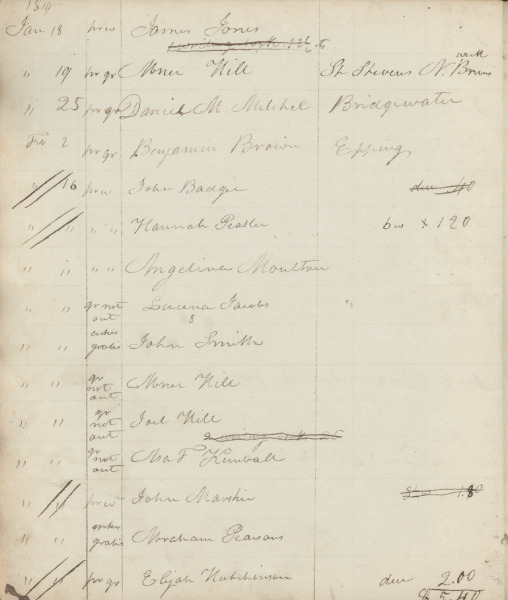 Jan 18 pr w James Jones
" 19 pr gr Abner Hill St Stevens N. Bruns wick
" 25 pr gr Daniel M. Mitchel Bridgewater
Feb 2 pr gr Benjamin Brown Epping
" 16 pr w John Badger due 40
" " " " Hannah Peaslee bw x 120
" " " " Angelina Moulton
" " gr not out Lucena Jacobs "
8
" " gratis John Smith
" " gr not out Abner Hill
" " gr not out Joel Hill
" " gr not out Asa F Kimball
" " pr w John Marstin
" " gratis Abraham Pearsons
" " pr gr Elijah Hutchinson due 2.00
$ 5.40